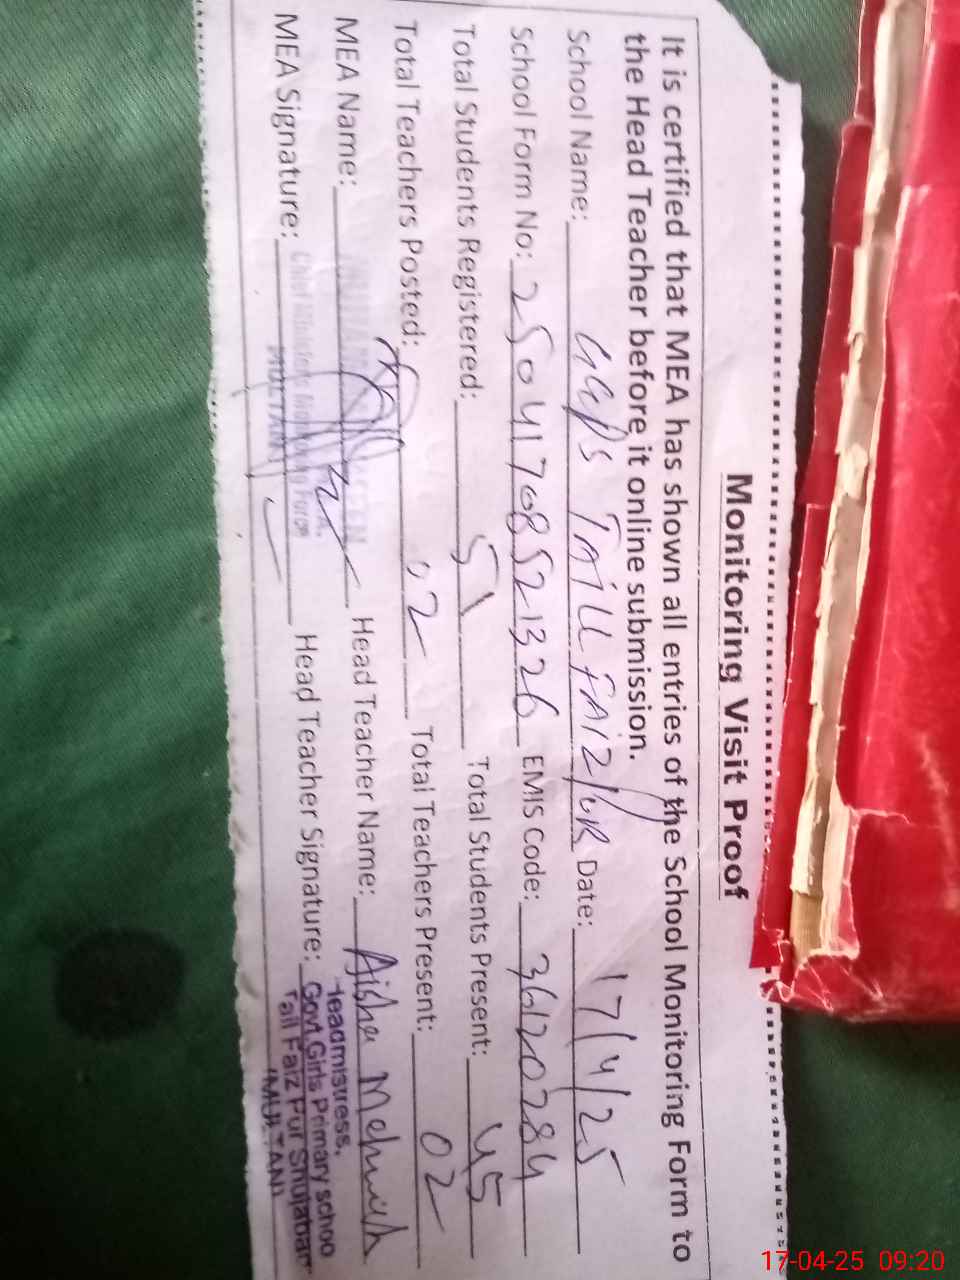 Monitoring Visit Proof
It is certified that MEA has shown all entries of the School Monitoring Form to
the Head Teacher before it online submission.
School Name: GGPS TAILL FAIZPUR Date: 17/4/25
School Form No: 25041708521326 EMIS Code: 36120284
Total Students Registered: 51 Total Students Present: 45
Total Teachers Posted: 02 Total Teachers Present: 02
MEA Name: Head Teacher Name: Aisha Mehmood
MEA Signature: Chief Minister's Monitoring Force Head Teacher Signature:
MULTAN
Headmistress,
Govt Girls Primary schoo
Tail Faiz Pur Shujabad
(MULTAN)
17-04-25 09:20